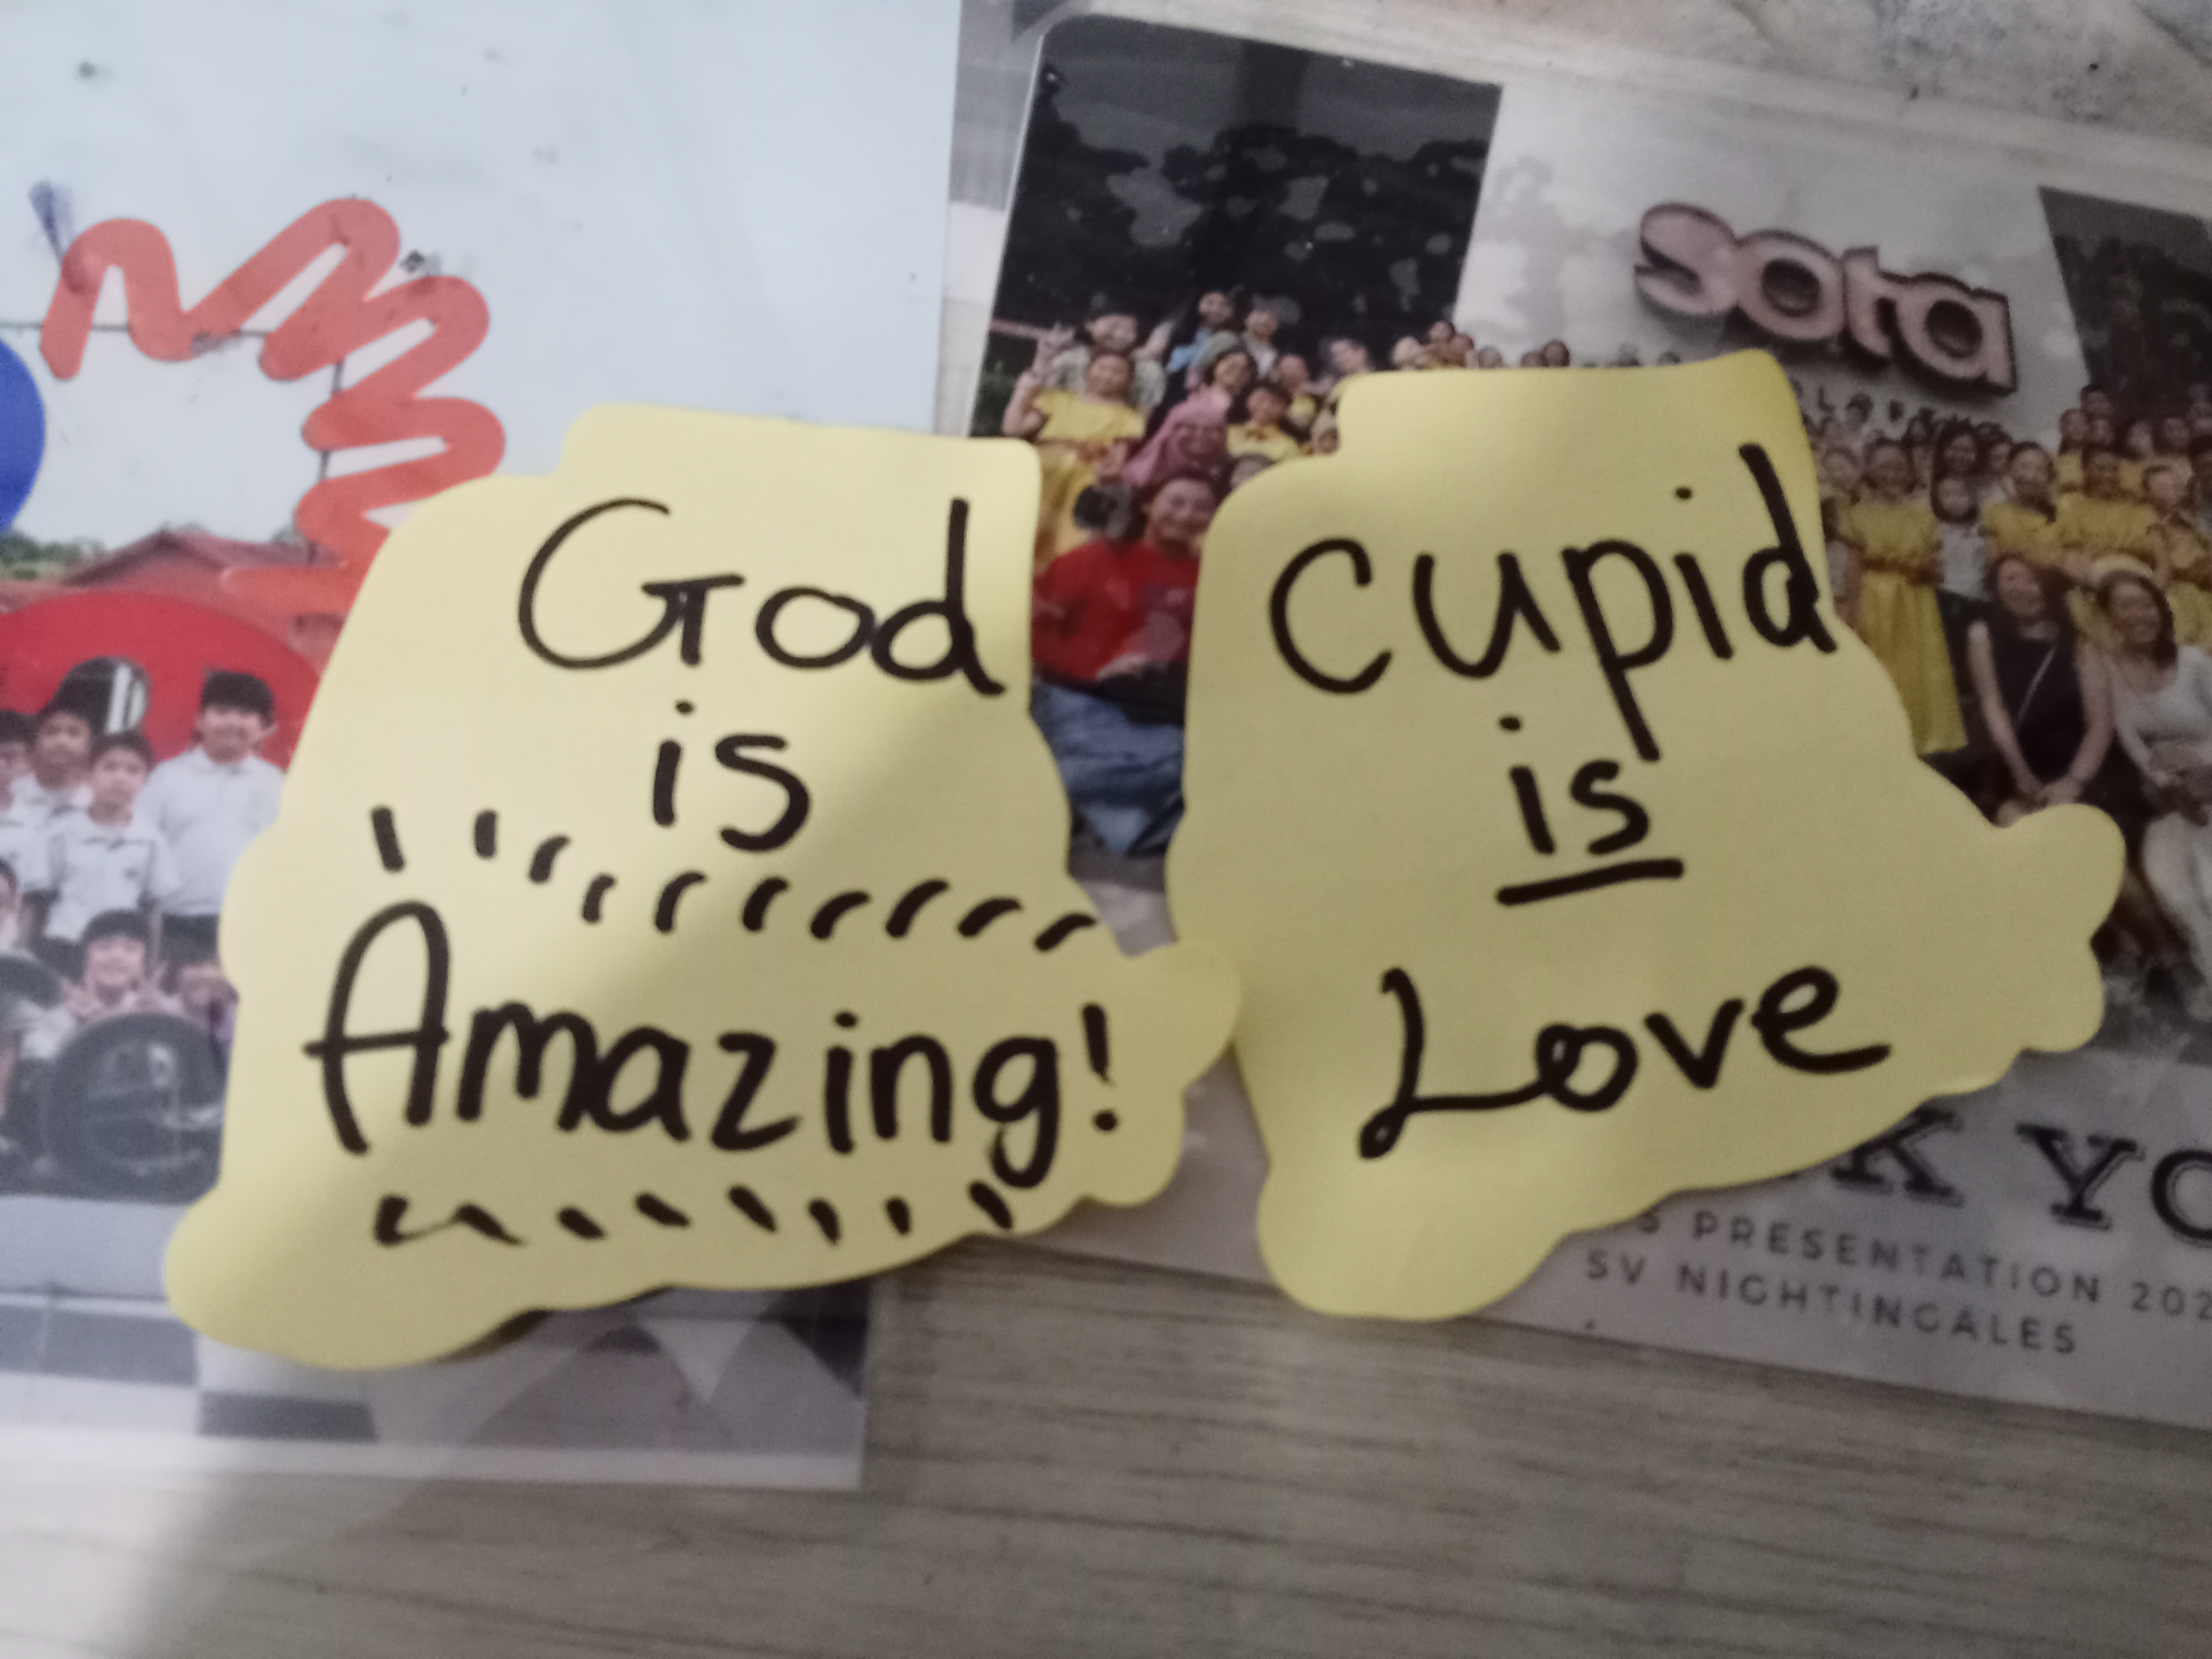 God
is
Amazing!
cupid
is
Love
sota
K YO
PRESENTATION 202
SV NIGHTINGALES